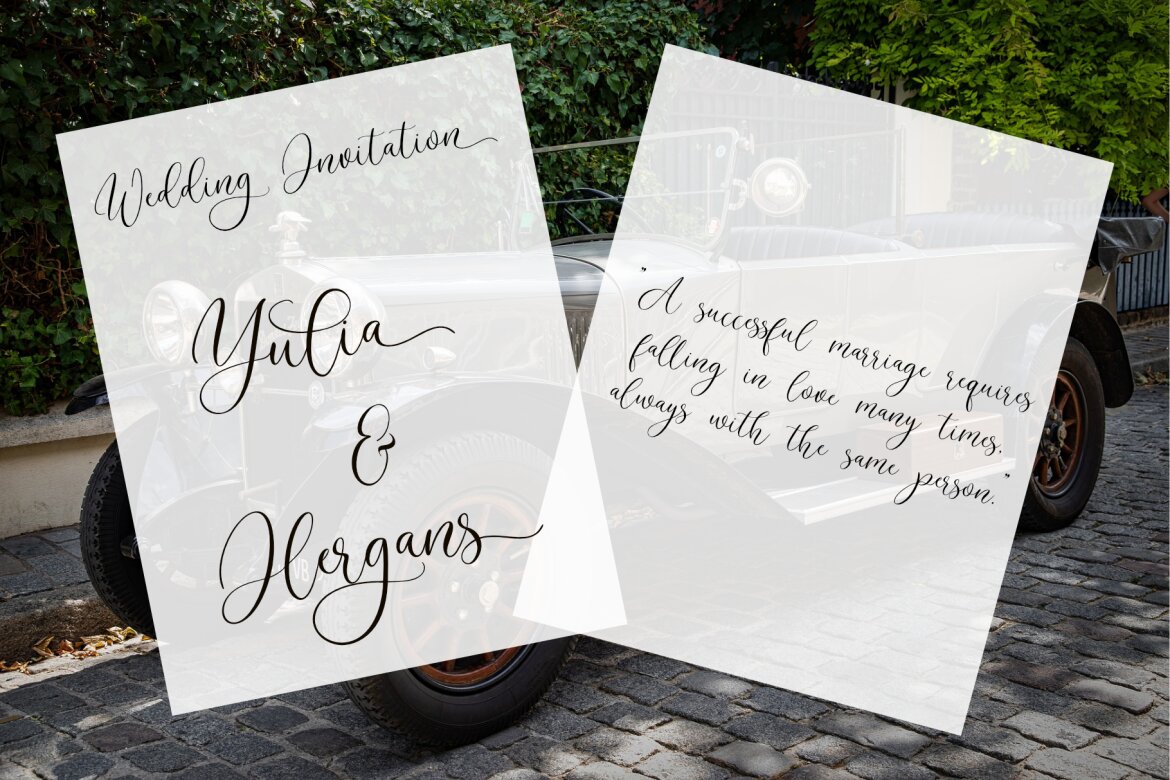 Wedding Invitation
Yulia
&
Hergans
"A successful marriage requires
falling in love many times.
always with the same person."